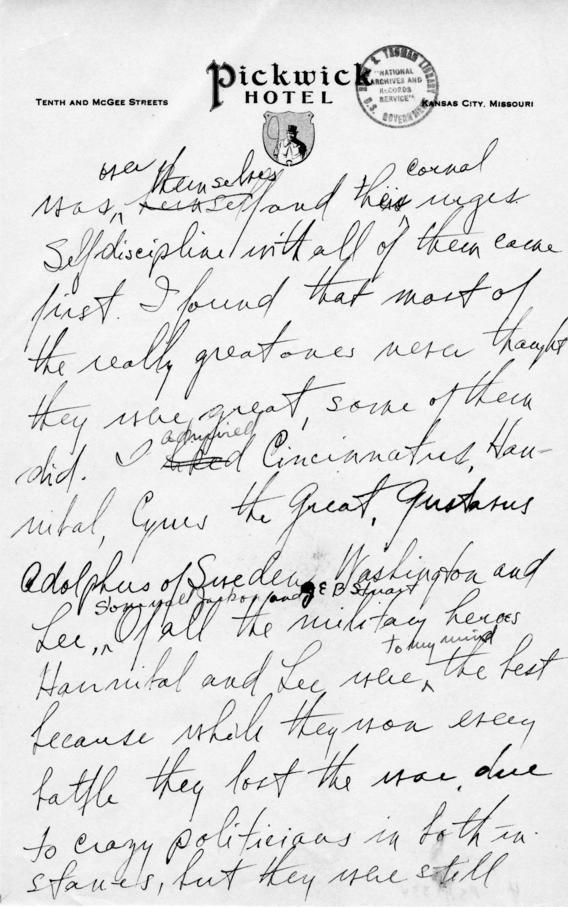 Pickwick
HOTEL
TENTH AND MCGEE STREETS
KANSAS CITY, MISSOURI
HARRY S. TRUMAN LIBRARY
"NATIONAL
ARCHIVES AND
RECORDS
SERVICE"
U.S. GOVERNMENT
over themselves carnal
was, himself and their urges
Self discipline with all of them came
first. I found that most of
the really great ones never thought
they were great, some of them
did. I admired Cincinnatus, Han-
nibal, Cyrus the Great, Gustavus
Adolphus of Sweden, Washington and
Stonewall Jackson and J E B Stuart
Lee, Of all the military heroes
to my mind
Hannibal and Lee were, the best
because while they won every
battle they lost the war, due
to crazy politicians in both in-
stances, but they were still